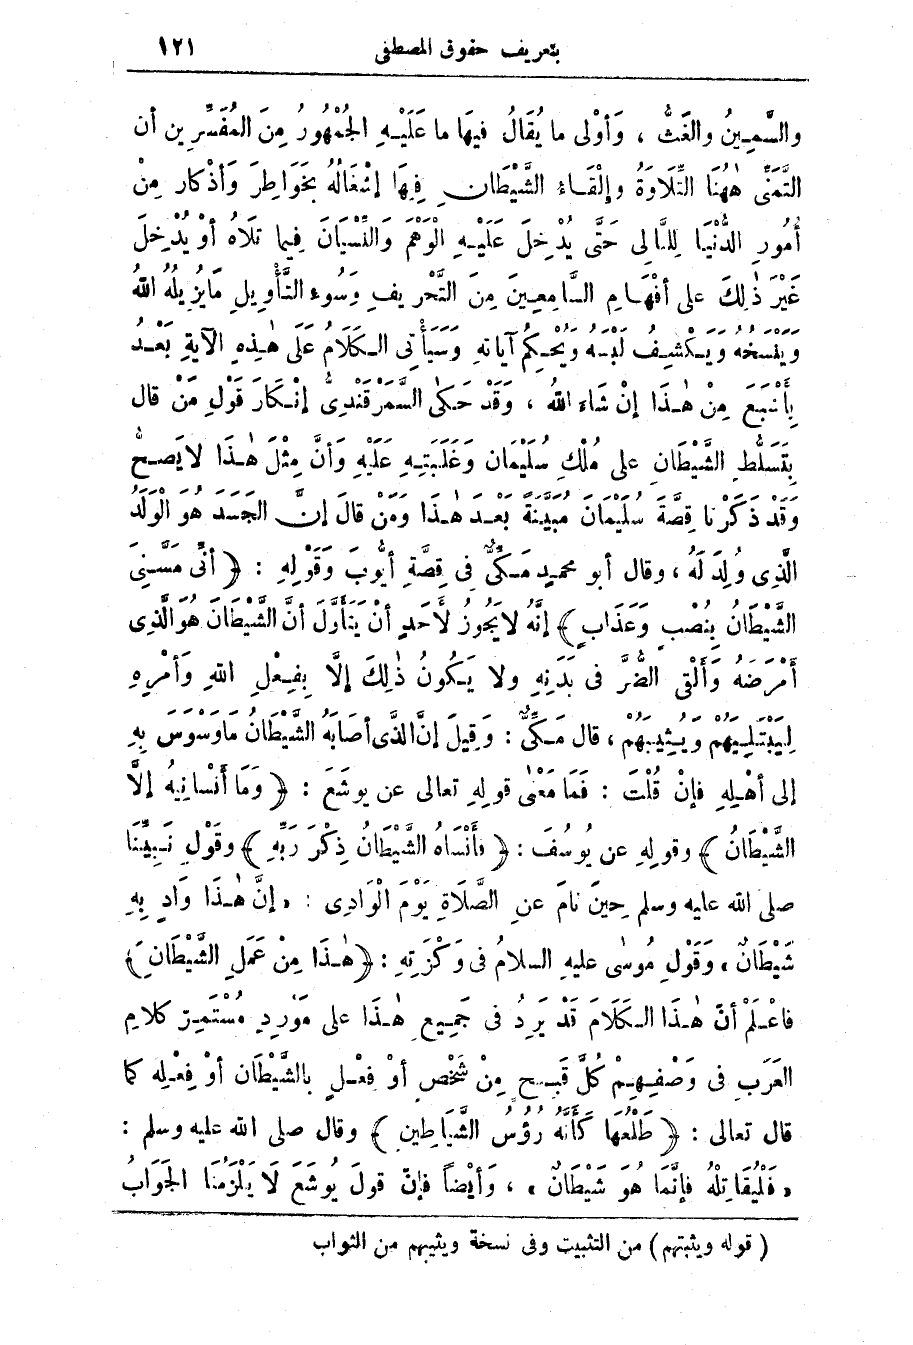 بتعريف حقوق المصطفى ١٢١
والسَّمِينُ والغَثُّ ، وَأَوْلَى ما يُقَالُ فيهَا ما عَلَيْهِ الجُمْهُورُ مِنَ المُفَسِّرِين أن
التَّمَنِّى هٰهُنَا التِّلَاوَةُ وإِلْقَاءُ الشَّيْطَانِ فِيهَا إشْغَالُهُ بِخَوَاطِرَ وَأَذْكار مِنْ
أُمُورِ الدُّنْيَا لِلتَّالِى حَتَّى يُدْخِلَ عَلَيْهِ الْوَهْمَ وَالنِّسْيَانَ فِيما تَلَاهُ أوْ يُدْخِلَ
غَيْرَ ذٰلِكَ على أفْهَامِ السَّامِعِينَ مِنَ التَّحْرِيفِ وَسُوءِ التَّأْوِيلِ مَا يُزِيلُهُ اللهُ
وَيَنْسَخُهُ وَيَكْشِفُ لَبْسَهُ وَيُحْكِمُ آياتهِ وَسَيَأْتِى الكَلَامُ عَلَى هٰذِهِ الآيَةِ بَعْدُ
بِأَشْبَعَ مِنْ هٰذَا إنْ شَاءَ اللهُ ، وَقَدْ حَكَى السَّمَرْقَنْدِىُّ إنْكَارَ قَوْلِ مَنْ قال
بِتَسَلُّطِ الشَّيْطَانِ على مُلْكِ سُلَيْمَان وَغَلَبَتِهِ عَلَيْهِ وَأنَّ مِثْلَ هٰذَا لا يَصِحُّ
وَقَدْ ذَكَرْنا قِصَّةَ سُلَيْمَانَ مُبَيَّنَةً بَعْدَ هٰذَا وَمَنْ قالَ إنَّ الجَسَدَ هُوَ الْوَلَدُ
الَّذِى وُلِدَ لَهُ ، وقال أبو محمدٍ مَكِّىٌّ فى قِصَّةِ أيُّوبَ وَقَوْلِهِ : ﴿ أَنِّى مَسَّنِىَ
الشَّيْطَانُ بِنُصْبٍ وَعَذَابٍ ﴾ إنَّهُ لا يَجُوزُ لأَحَدٍ أنْ يَتَأَوَّلَ أنَّ الشَّيْطَانَ هُوَ الَّذِى
أَمْرَضَهُ وَأَلْقَى الضُّرَّ فى بَدَنِهِ ولا يَكُونُ ذٰلِكَ إلَّا بِفِعْلِ اللهِ وَأمْرِهِ
لِيَبْتَلِيَهُمْ وَيُثِيبَهُمْ ، قال مَكِّىٌّ : وَقِيلَ إنَّ الذَّى أصَابَهُ الشَّيْطَانُ مَا وَسْوَسَ بِهِ
إلى أهْلِهِ فإنْ قُلْتَ : فَمَا مَعْنَى قولِهِ تعالى عن يوشَعَ : ﴿ وَمَا أَنْسَانِيهُ إلَّا
الشَّيْطَانُ ﴾ وقولِهِ عن يُوسُفَ : ﴿ فأَنْسَاهُ الشَّيْطَانُ ذِكْرَ رَبِّهِ ﴾ وقَوْلِ نَبِيِّنَا
صلى الله عليه وسلم حِينَ نامَ عنِ الصَّلَاةِ يَوْمَ الْوَادِى : « إنَّ هٰذَا وَادٍ بِهِ
شَيْطَانٌ » وَقَوْلِ مُوسٰى عليهِ السلامُ فى وَكْزَتِهِ : ﴿ هٰذَا مِنْ عَمَلِ الشَّيْطَانِ ﴾
فاعْلَمْ أنَّ هٰذَا الكَلَامَ قَدْ يَرِدُ فى جَمِيعِ هٰذَا على مَوْرِدِ مُسْتَمِرِّ كلامِ
العَرَبِ فى وَصْفِهِمْ كُلَّ قَبِيحٍ مِنْ شَخْصٍ أوْ فِعْلٍ بالشَّيْطَانِ أوْ فِعْلِه كما
قال تعالى : ﴿ طَلْعُهَا كَأَنَّهُ رُؤُسُ الشَّيَاطِينِ ﴾ وقال صلى الله عليه وسلم :
« فَلْيُقَاتِلْهُ فإنَّمَا هُوَ شَيْطَانٌ » ، وَأيْضاً فإنَّ قولَ يُوشَعَ لَا يَلْزَمُنَا الجَوَابُ
( قوله ويثبتهم ) من التثبيت وفى نسخة ويثيبهم من الثواب